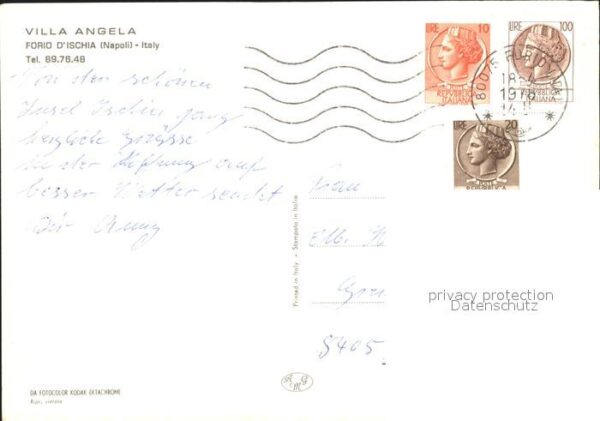 VILLA ANGELA
FORIO D'ISCHIA (Napoli) - Italy
Tel. 89.76.48
Von der schönen
Insel Ischia ganz
herzliche Grüsse
In der Hoffnung auf
besser Wetter sendet
Dir
Frau
Elb. H
8405
Printed in Italy - Stampato in Italia
DA FOTOCOLOR KODAK EKTACHROME
Ripr. vietata
LIRE 10
REPUBBLICA
ITALIANA
LIRE 100
REPUBBLICA
ITALIANA
LIRE 20
80075 FORIO
18
1978
privacy protection
Datenschutz